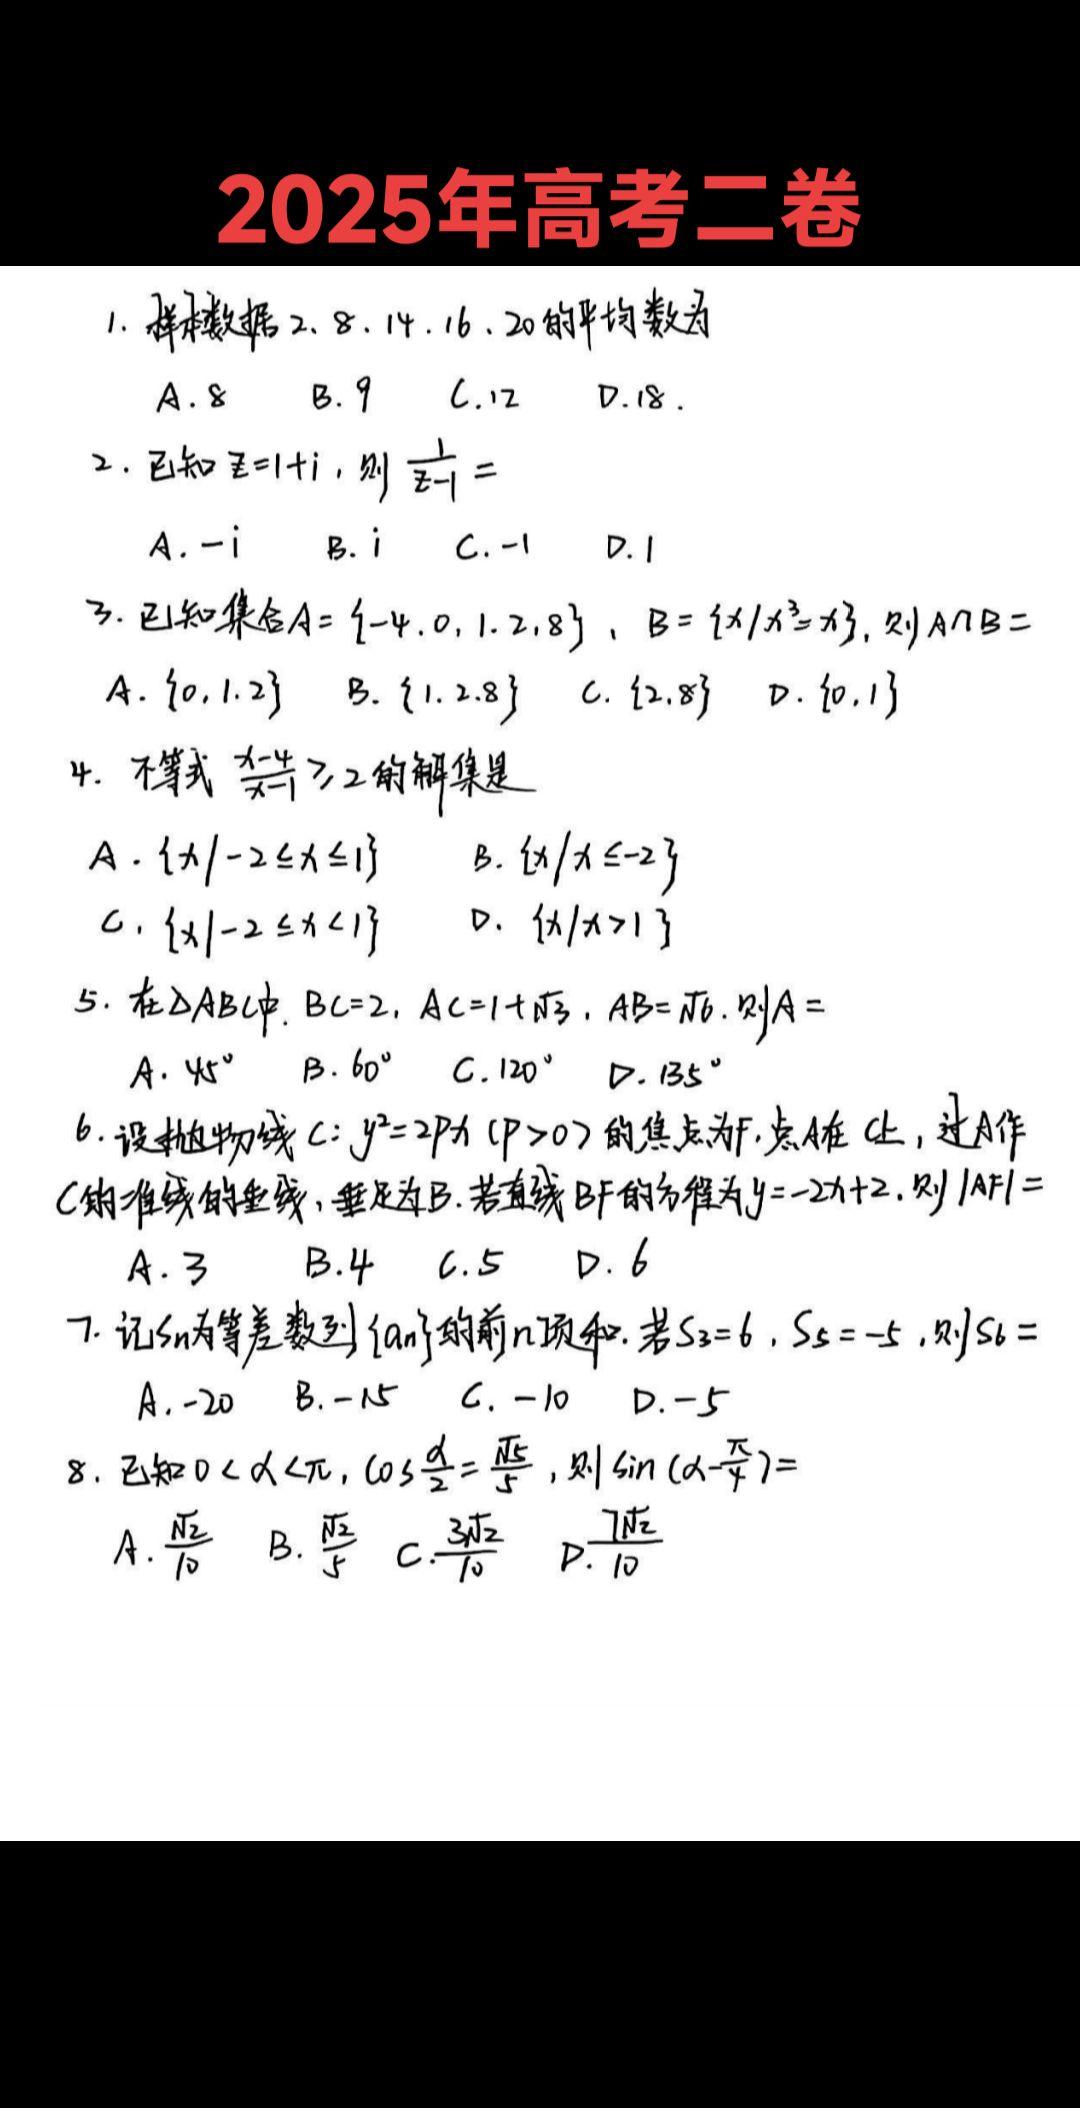 2025年高考二卷
1. 样本数据2、8、14、16、20的平均数为
A. 8 B. 9 C. 12 D. 18.
2. 已知 z=1+i, 则 1/(z-1) =
A. -i B. i C. -1 D. 1
3. 已知集合A={-4.0,1.2,8}, B={x/x³=x}, 则A∩B=
A. {0,1.2} B. {1.2.8} C. {2.8} D. {0,1}
4. 不等式 (x-4)/(x-1) ≥2的解集是
A. {x/-2≤x≤1} B. {x/x≤-2}
C. {x/-2≤x<1} D. {x/x>1}
5. 在△ABC中. BC=2, AC=1+√3, AB=√6. 则A=
A. 45° B. 60° C. 120° D. 135°
6. 设抛物线C: y²=2px (p>0)的焦点为F. 点A在C上, 过A作
C的准线的垂线, 垂足为B. 若直线BF的方程为y=-2x+2. 则|AF|=
A. 3 B. 4 C. 5 D. 6
7. 记Sn为等差数列{an}的前n项和. 若S3=6, S5=-5, 则S6=
A. -20 B. -15 C. -10 D. -5
8. 已知0<α<π, cos α/2 = √5/5, 则sin(α-π/4)=
A. √2/10 B. √2/5 C. 3√2/10 D. 7√2/10